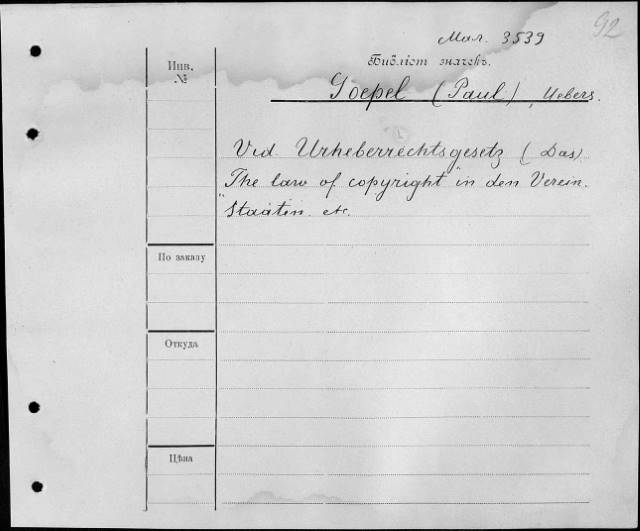 92
Мал. 3539
Библіот. значекъ.
Инв.
№
Goepel (Paul), Uebers.
Vid. Urheberrechtsgesetz (Das)
"The law of copyright" in den Verein.
Staaten. etc.
По заказу
Откуда
Цѣна